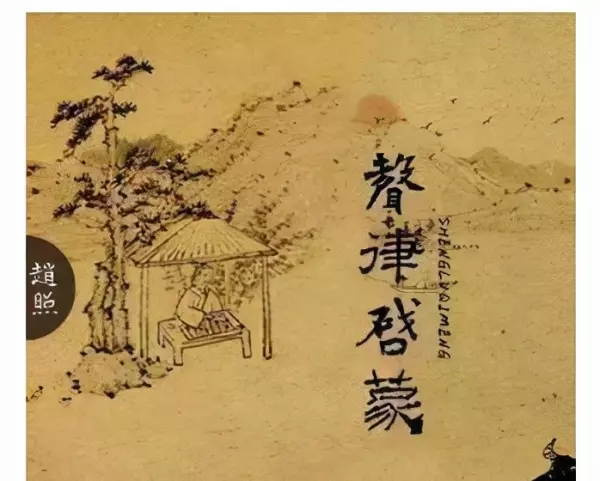 聲律啓蒙
SHENGLUQIMENG
趙照